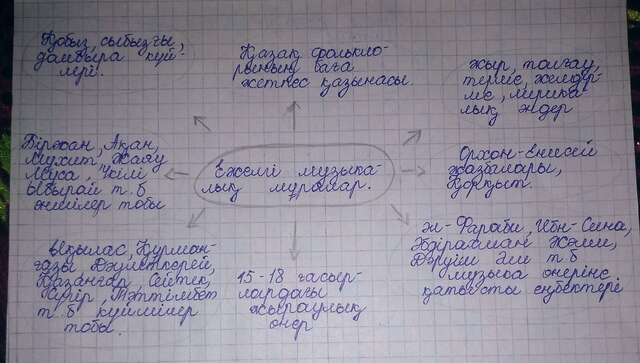 Қобыз, сыбызғы,
домбыра күй-
лері.
Қазақ фолькло-
рының баға
жетпес қазынасы.
жыр, толғау,
терме, желдір-
ме, лирика-
лық әндер
Біржан, Ақан,
Мұхит, Жаяу
Мұса, Үкілі
Ыбырай т.б
әншілер тобы
Ежелгі музыка-
лық мұралар.
Орхон-Енисей
жазбалары,
Қорқыт.
Ықылас, Құрман-
ғазы Дәулеткерей,
Қазанғап, Сейтек,
Тәттімбет
т.б күйшілер
тобы.
15-18 ғасыр-
лардағы
жыраулық
өнер
әл-Фараби, Ибн-Сина,
Жәми,
Дәруіш Әли т.б
музыка өнеріне
қатысты еңбектері